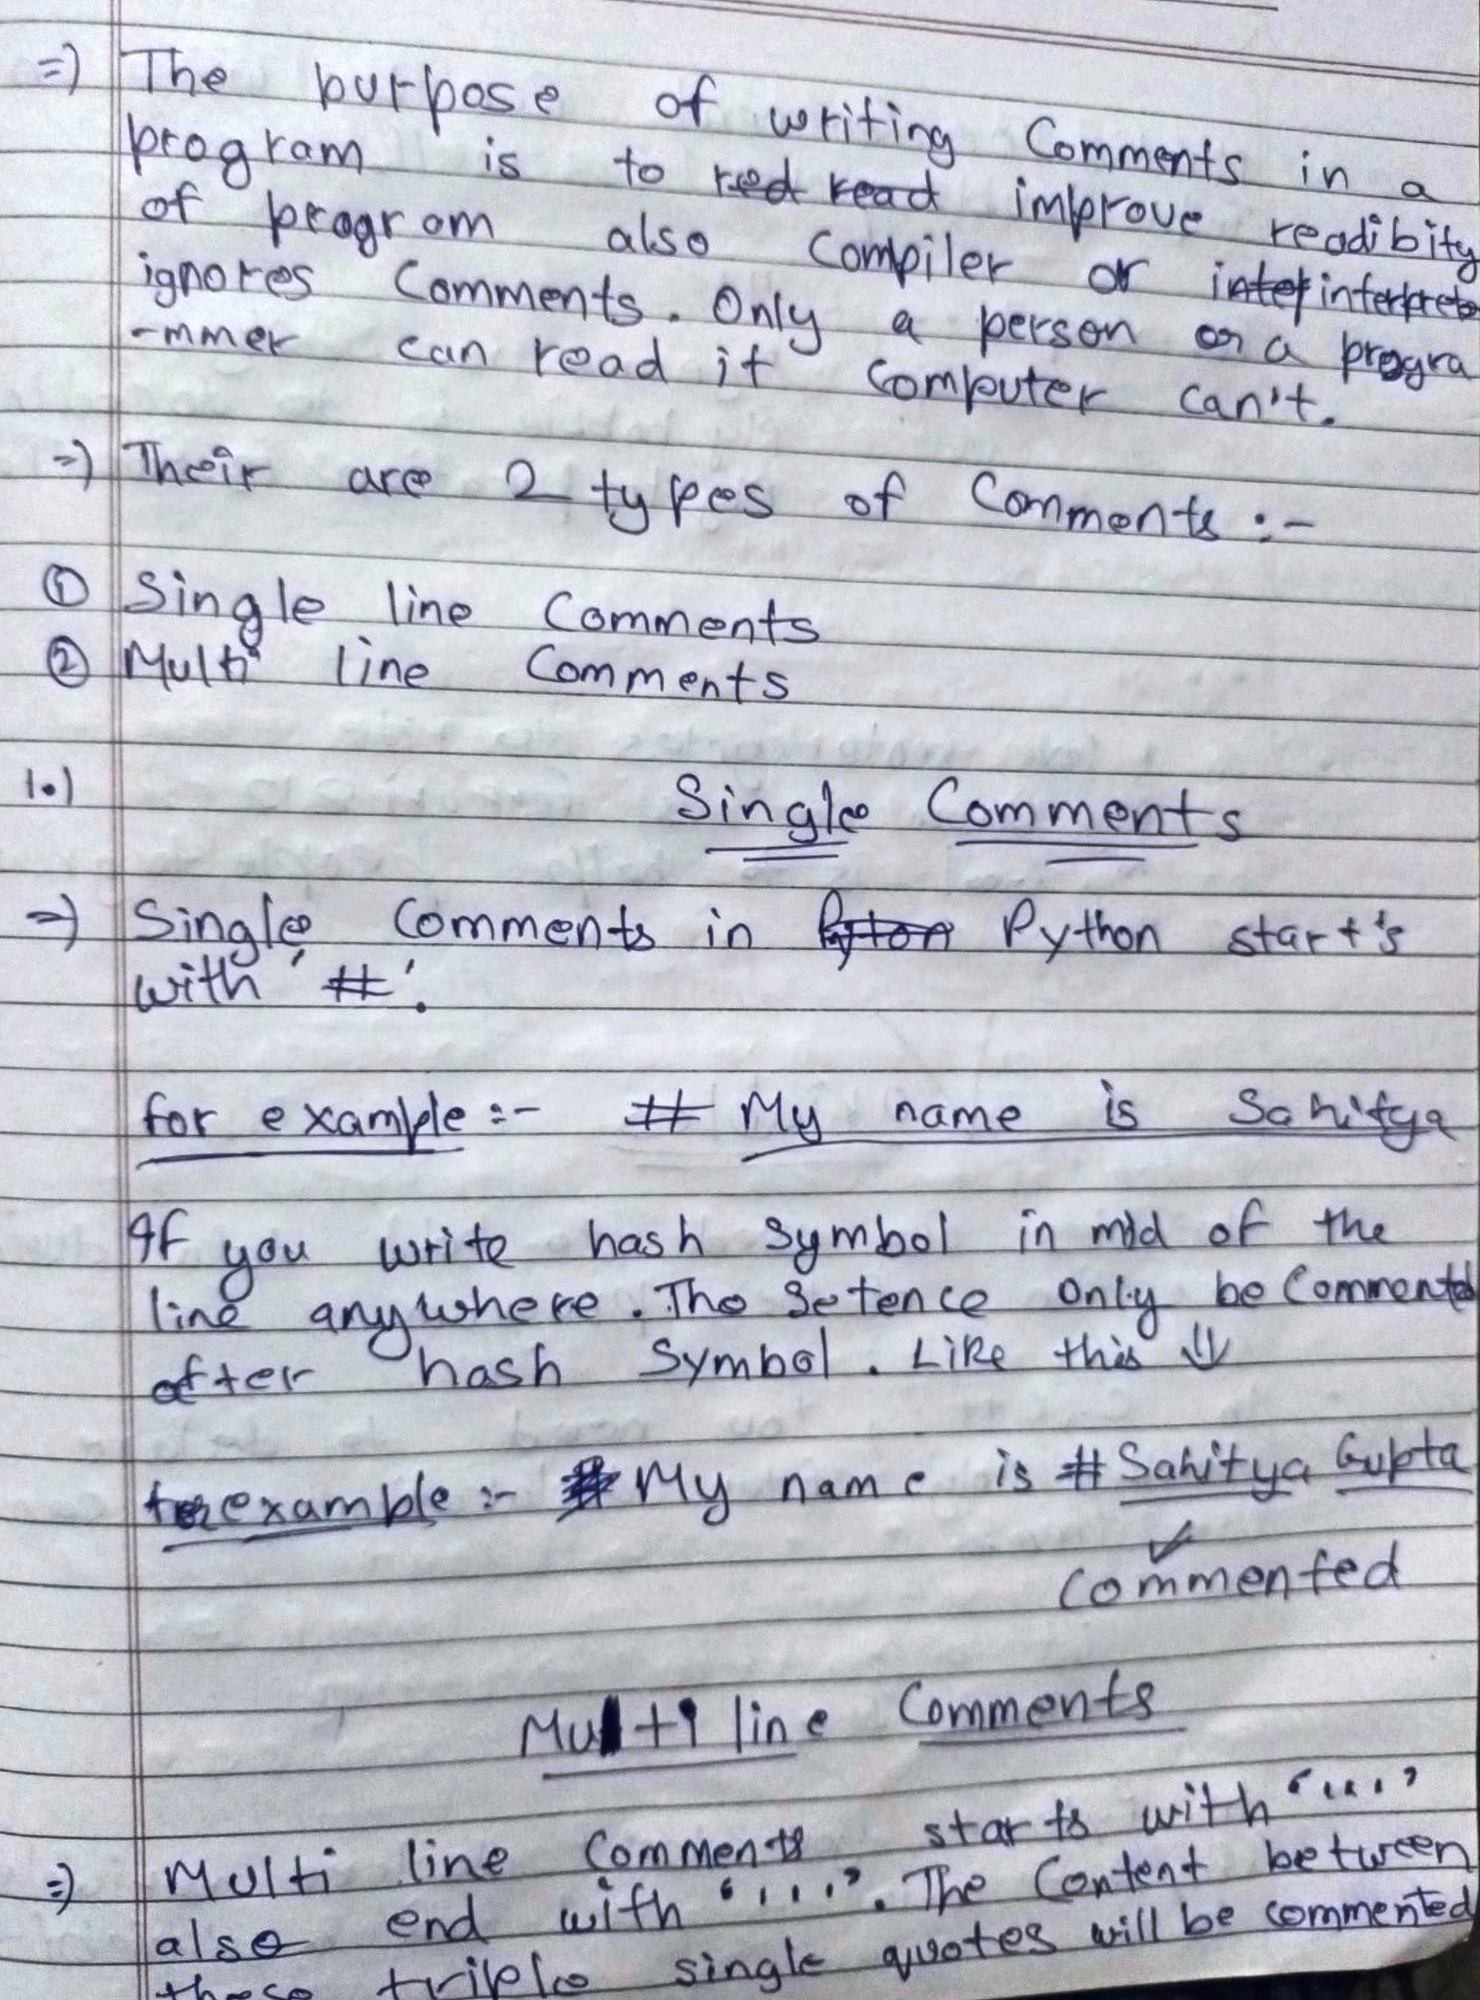 =) The purpose of writing Comments in a
program is to red read improve readibity
of program also Compiler or intep interprete
ignores Comments. Only a person or a progra
-mmer can read it Computer can't.
=) Their are 2 types of Comments :-
① Single line Comments
② Multi line Comments
1.) Single Comments
=) Single Comments in Pyton Python start's
with '#'.
for example :- # My name is Sahitya
If you write hash symbol in mid of the
line anywhere. The Setence only be Commented
after hash Symbol. Like this ⇓
for example :- # My name is # Sahitya Gupta
Commented
Multi line Comments
=) Multi line Comments starts with ''''
also end with ''''. The Content between
these triple single quotes will be commented